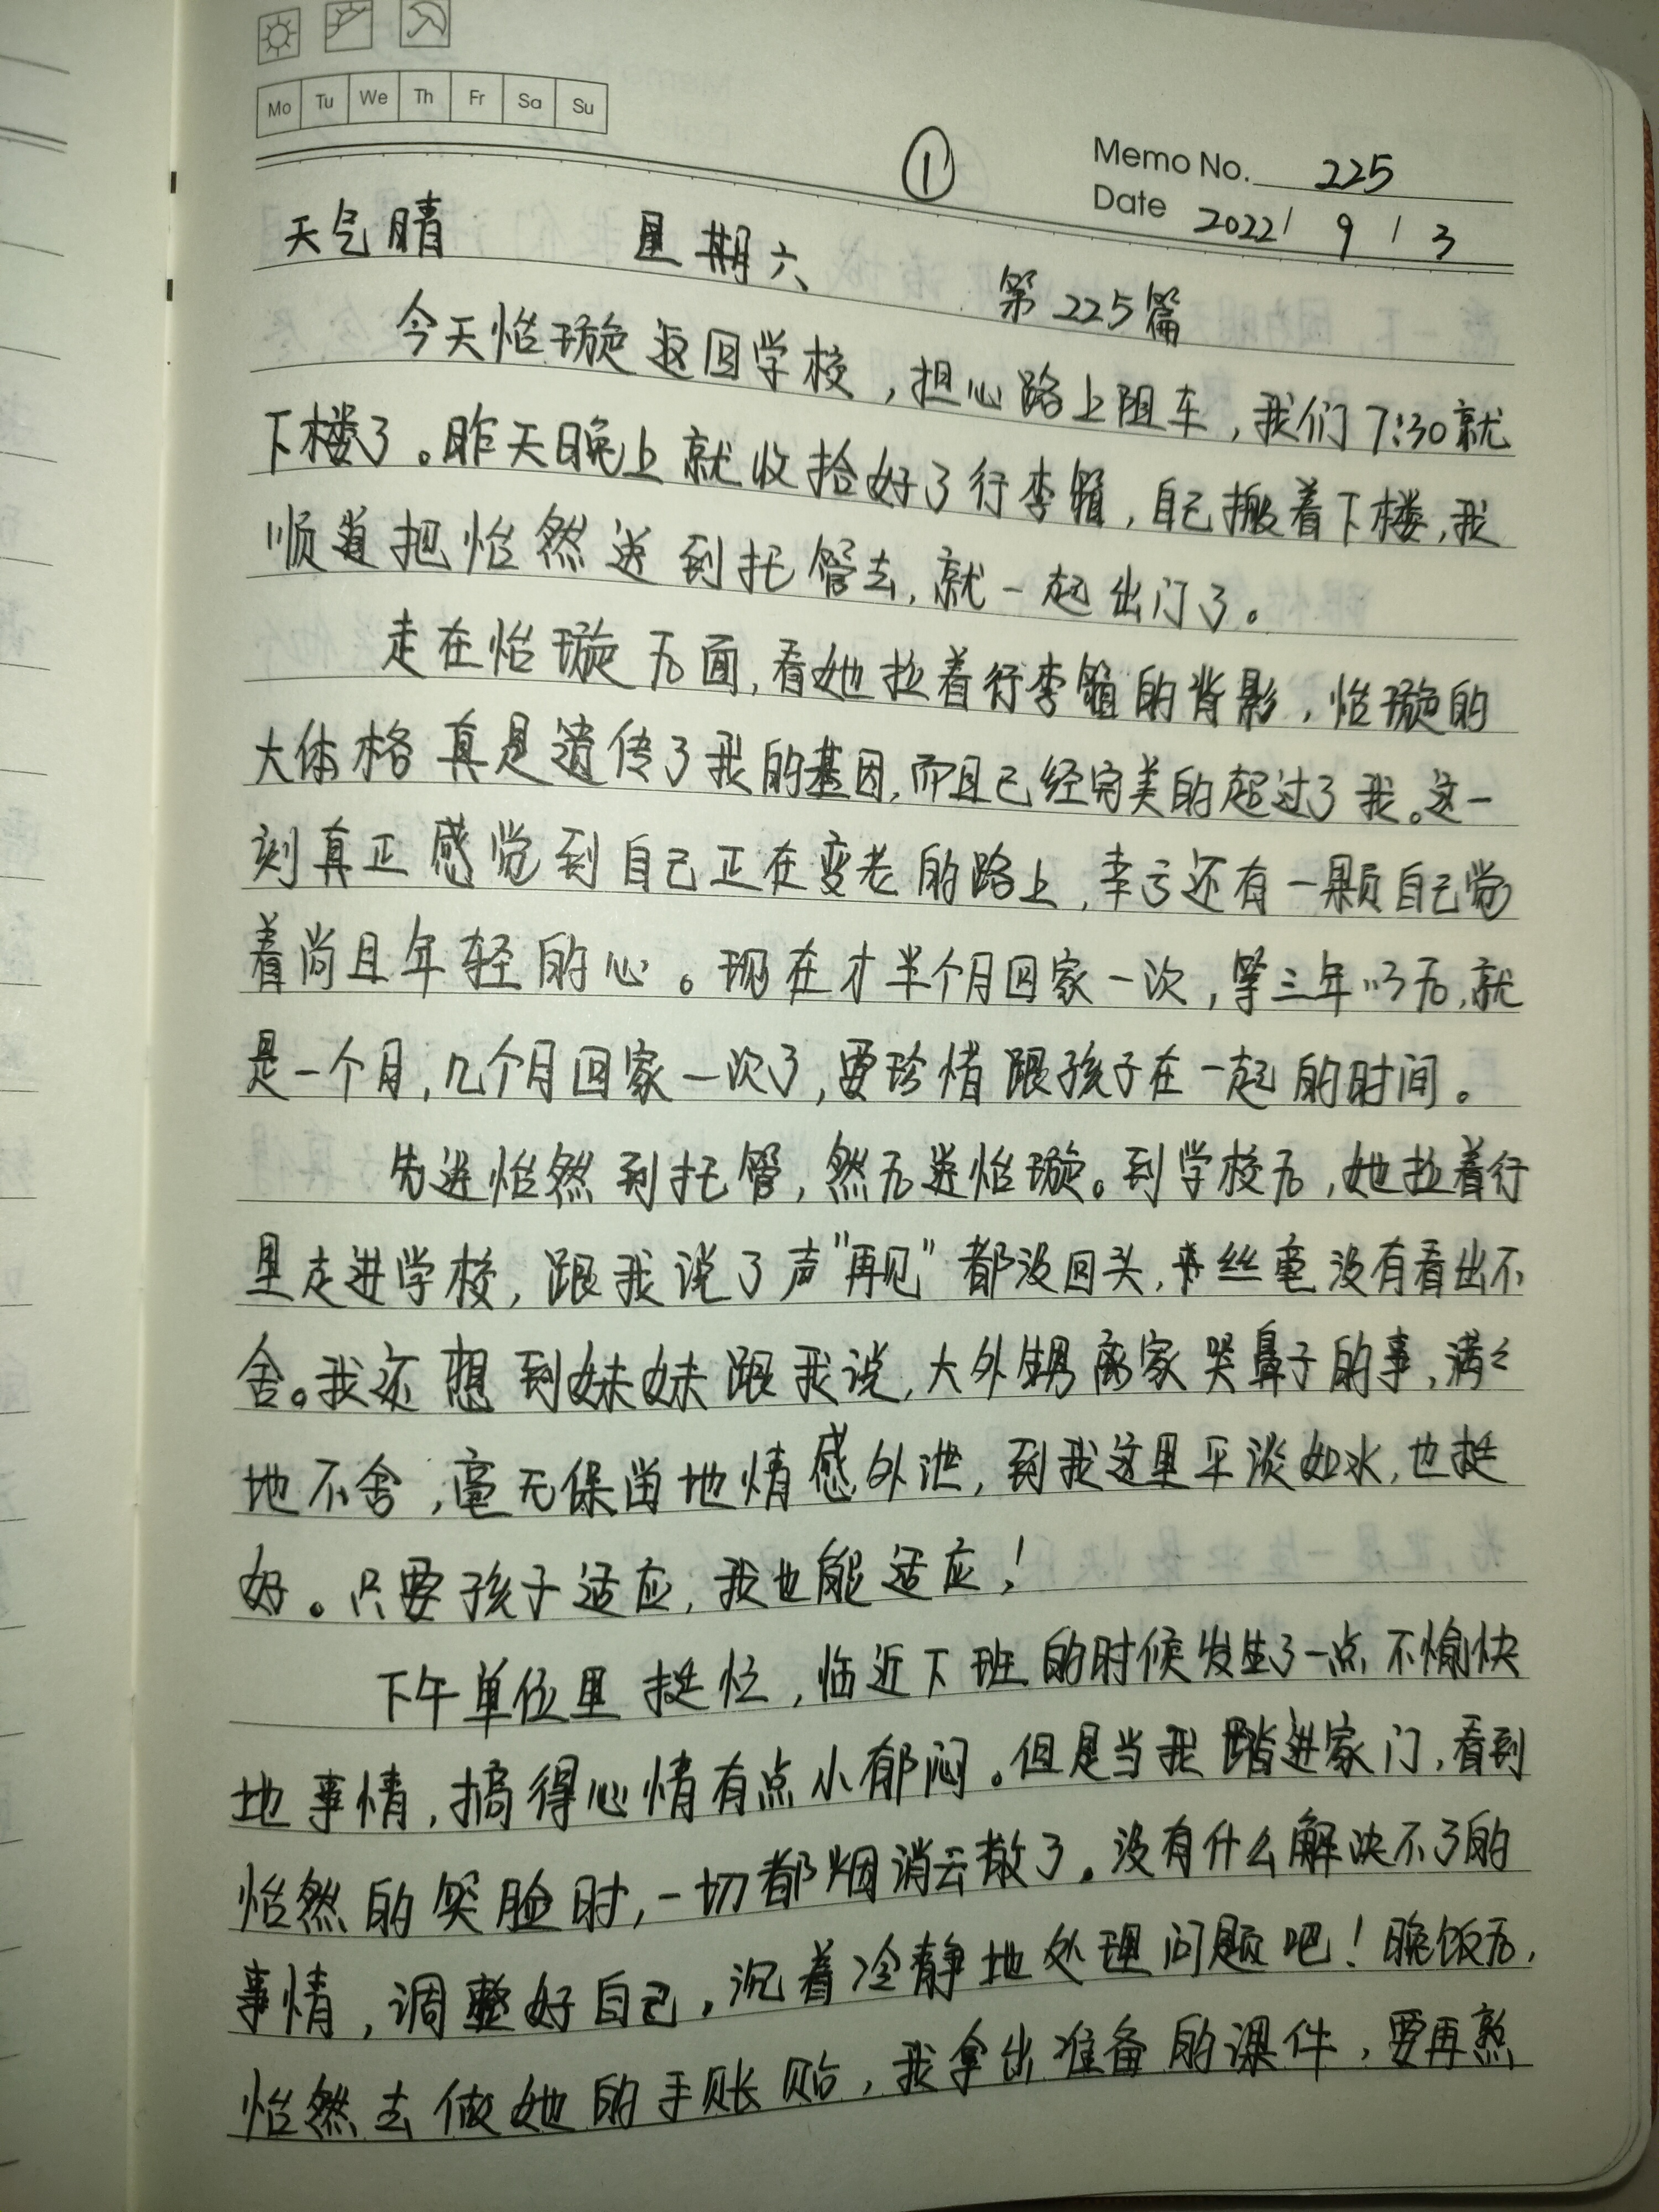 Mo Tu We Th Fr Sa Su
①
Memo No. 225
Date 2022/ 9 / 3
天气晴 星期六 第225篇
今天怡璇返回学校，担心路上阻车，我们7:30就
下楼了。昨天晚上就收拾好了行李箱，自己搬着下楼，我
顺道把怡然送到托管去，就一起出门了。
走在怡璇后面，看她拉着行李箱的背影，怡璇的
大体格真是遗传了我的基因，而且已经完美的超过了我。这一
刻真正感觉到自己正在变老的路上，幸亏还有一颗自己觉
着尚且年轻的心。现在才半个月回家一次，等三年以后，就
是一个月，几个月回家一次了，要珍惜跟孩子在一起的时间。
先送怡然到托管，然后送怡璇。到学校后，她拉着行
里走进学校，跟我说了声"再见"都没回头，丝毫没有看出不
舍。我还想到妹妹跟我说，大外甥离家哭鼻子的事，满满
地不舍，毫无保留地情感外泄，到我这里平淡如水，也挺
好。只要孩子适应，我也能适应！
下午单位里挺忙，临近下班的时候发生了一点不愉快
地事情，搞得心情有点小郁闷。但是当我踏进家门，看到
怡然的笑脸时，一切都烟消云散了。没有什么解决不了的
事情，调整好自己，沉着冷静地处理问题吧！晚饭后，
怡然去做她的手账贴，我拿出准备的课件，要再熟